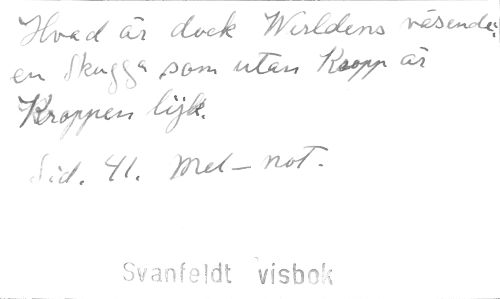 Hvad är dock Werldens väsende,
en Skugga som utan Kropp är
Kroppen lijk.
Sid. 41. Mel-not.
Svanfeldt visbok